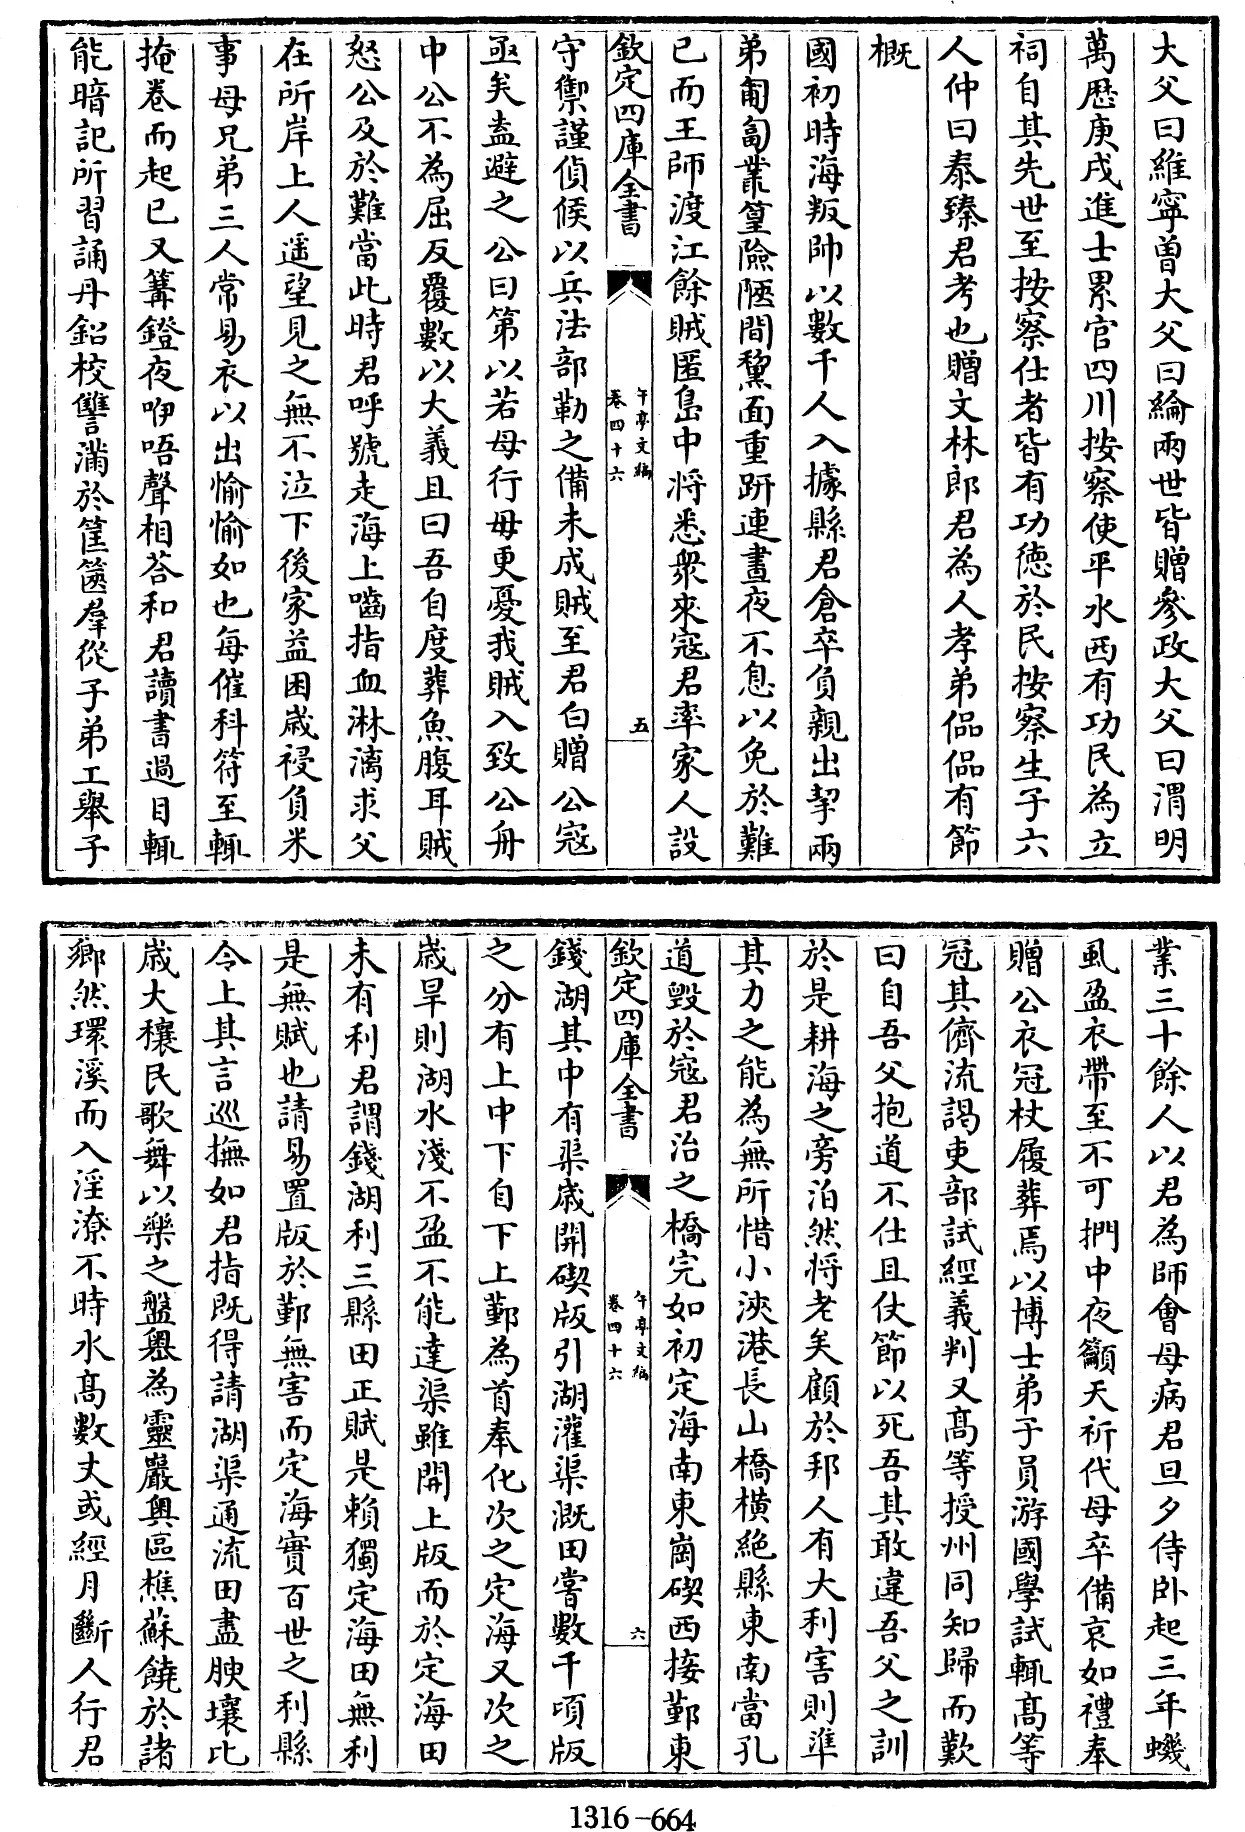 大父曰維寧曽大父曰綸兩世皆贈參政大父曰渭明
萬歴庚戌進士累官四川按察使平水西有功民為立
祠自其先世至按察仕者皆有功徳於民按察生子六
人仲曰泰臻君考也贈文林郎君為人孝弟偘偘有節
概
國初時海叛帥以數千人入據縣君倉卒負親出挈兩
弟匍匐叢篁險陿間黧面重趼連晝夜不息以免於難
已而王師渡江餘賊匿島中将悉衆來寇君率家人設
欽定四庫全書
午亭文編
卷四十六
五
守禦謹偵候以兵法部勒之備未成賊至君白贈公寇
亟矣盍避之公曰第以若母行毋更憂我賊入致公舟
中公不為屈反覆數以大義且曰吾自度葬魚腹耳賊
怒公及於難當此時君呼號走海上嚙指血淋漓求父
在所岸上人遥望見之無不泣下後家益困歳祲負米
事母兄弟三人常易衣以出愉愉如也每催科符至輒
掩卷而起已又篝鐙夜咿唔聲相荅和君讀書過目輒
能暗記所習誦丹鉛校讐滿於筐篋羣從子弟工舉子
業三十餘人以君為師會母病君旦夕侍卧起三年蟣
虱盈衣帶至不可捫中夜籲天祈代母卒備哀如禮奉
贈公衣冠杖履葬焉以博士弟子員游國學試輒髙等
冠其儕流謁吏部試經義判又髙等授州同知歸而歎
曰自吾父抱道不仕且仗節以死吾其敢違吾父之訓
於是耕海之旁泊然将老矣顧於邦人有大利害則準
其力之能為無所惜小浹港長山橋橫絶縣東南當孔
道毀於寇君治之橋完如初定海南東崗碶西接鄞東
欽定四庫全書
午亭文編
卷四十六
六
錢湖其中有渠歳開碶版引湖灌渠溉田嘗數千頃版
之分有上中下自下上鄞為首奉化次之定海又次之
歳旱則湖水淺不盈不能達渠雖開上版而於定海田
未有利君謂錢湖利三縣田正賦是賴獨定海田無利
是無賦也請易置版於鄞無害而定海實百世之利縣
令上其言巡撫如君指既得請湖渠通流田盡腴壤比
歳大穰民歌舞以樂之盤嶴為靈巖奥區樵蘇饒於諸
鄉然環溪而入淫潦不時水髙數丈或經月斷人行君
1316-664